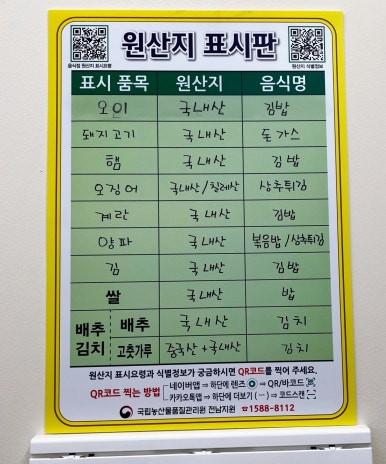 원산지 표시판
음식점 원산지 표시요령
원산지 식별정보
표시 품목 원산지 음식명
오이 국내산 김밥
돼지고기 국내산 돈가스
햄 국내산 김밥
오징어 국내산/칠레산 상추튀김
계란 국내산 김밥
양파 국내산 볶음밥/상추튀김
김 국내산 김밥
쌀 국내산 밥
배추김치 배추 국내산 김치
고춧가루 중국산+국내산 김치
원산지 표시요령과 식별정보가 궁금하시면 QR코드를 찍어 주세요.
QR코드 찍는 방법
네이버앱 ⇒ 하단에 렌즈 ⇒ QR/바코드
카카오톡앱 ⇒ 하단에 더보기 (···) ⇒ 코드스캔
국립농산물품질관리원 전남지원 ☎1588-8112